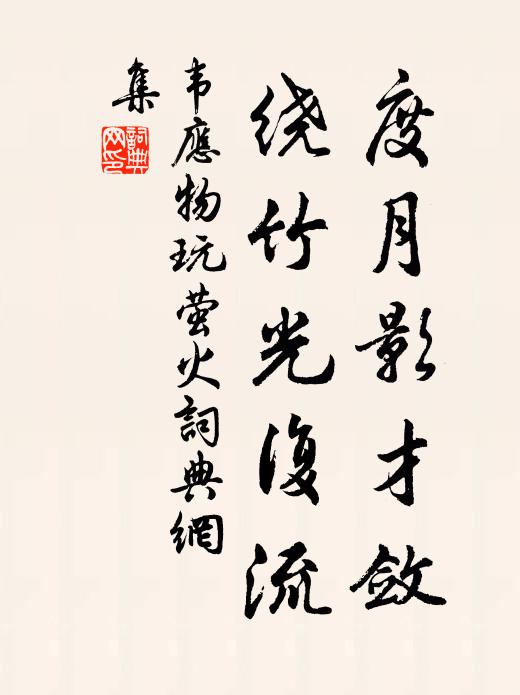 度月影才敛
绕竹光復流
韦應物玩萤火詞典網
集
詞典网印